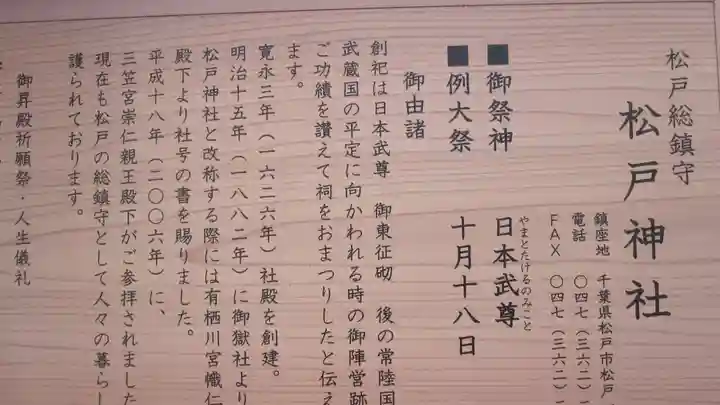 松戸総鎮守
松戸神社
鎮座地 千葉県松戸市松戸
電話 〇四七(三六二)
FAX 〇四七(三六二)
■御祭神 日本武尊
やまとたけるのみこと
■例大祭 十月十八日
御由諸
創祀は日本武尊 御東征砌 後の常陸国
武蔵国の平定に向かわれる時の御陣営跡
ご功績を讃えて祠をおまつりしたと伝え
ます。
寛永三年(一六二六年)社殿を創建。
明治十五年(一八八二年)に御獄社より
松戸神社と改称する際には有栖川宮幟仁
殿下より社号の書を賜りました。
平成十八年(二〇〇六年)に、
三笠宮崇仁親王殿下がご参拝されました
現在も松戸の総鎮守として人々の暮らし
護られております。
御昇殿祈願祭・人生儀礼